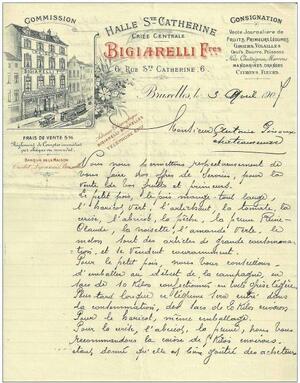 COMMISSION
HALLE Ste CATHERINE
CRIÉE CENTRALE
BIGIARELLI Fres
6, RUE Ste CATHERINE, 6
CONSIGNATION
Vente Journalière de
FRUITS, PRIMEURS, LÉGUMES
GIBIERS, VOLAILLES
Oeufs, Beurres, Poissons
MANDARINES, ORANGES
CITRONS, FLEURS
BIGIARELLI
FRAIS DE VENTE 5%
BANQUE DE LA MAISON
Bruxelles, le 3 Avril 190
Monsieur
Chateaurenard
Nous nous permettons respectueusement de
vous faire nos offres de service, pour la
vente de vos fruits et primeurs.
Le petit pois, le pois mange tout large,
l'haricot vert, l' la tomate, la
cerise, l'abricot, la pêche, la prune Reine-
Claude, la noisette, l'amande verte, le
melon sont des articles de grande consomma-
tion, et se vendent couramment.
Pour le petit pois, nous vous conseillons
d'emballer au début de la campagne, en
sacs de 10 Kilos confectionnés en toile
Plus tard lorsque cet article sera entré dans
la consommation, des sacs de Kilos environ
Pour le haricot, même emballage.
Pour la cerise, l'abricot, la prune, nous vous
recommandons la caisse de Kilos environs
étant donné qu'elle est bien goûtée des acheteurs